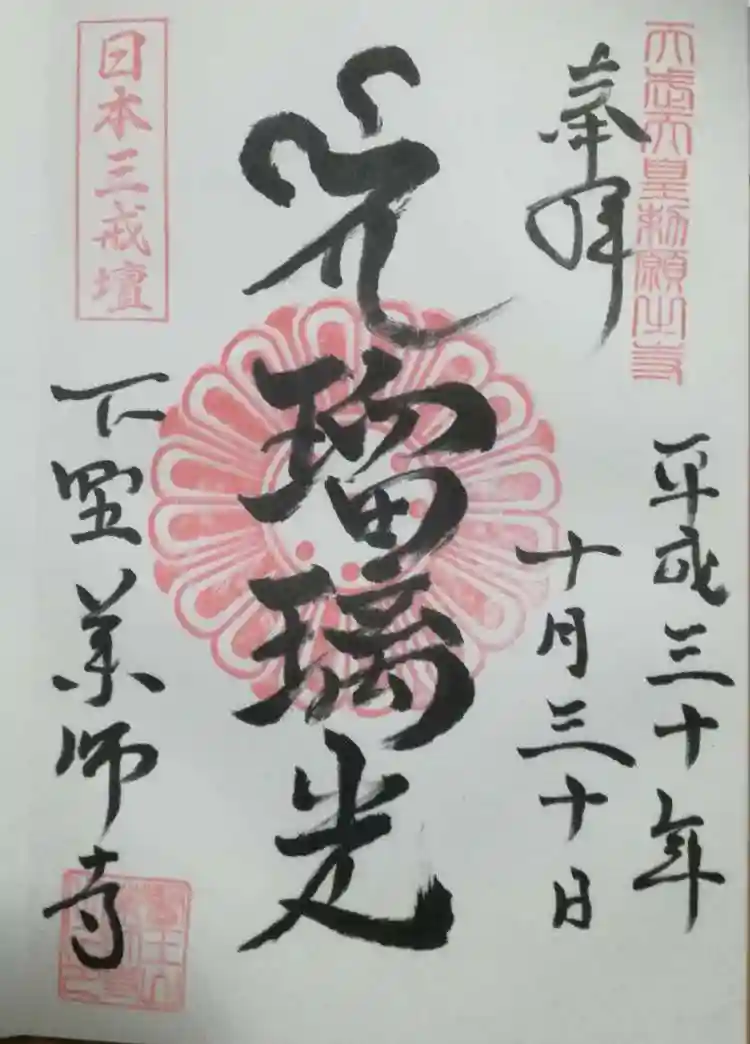 天武天皇勅願出寺
奉拝
平成三十年
十月三十日
瑠璃光
日本三戒壇
下野薬師寺